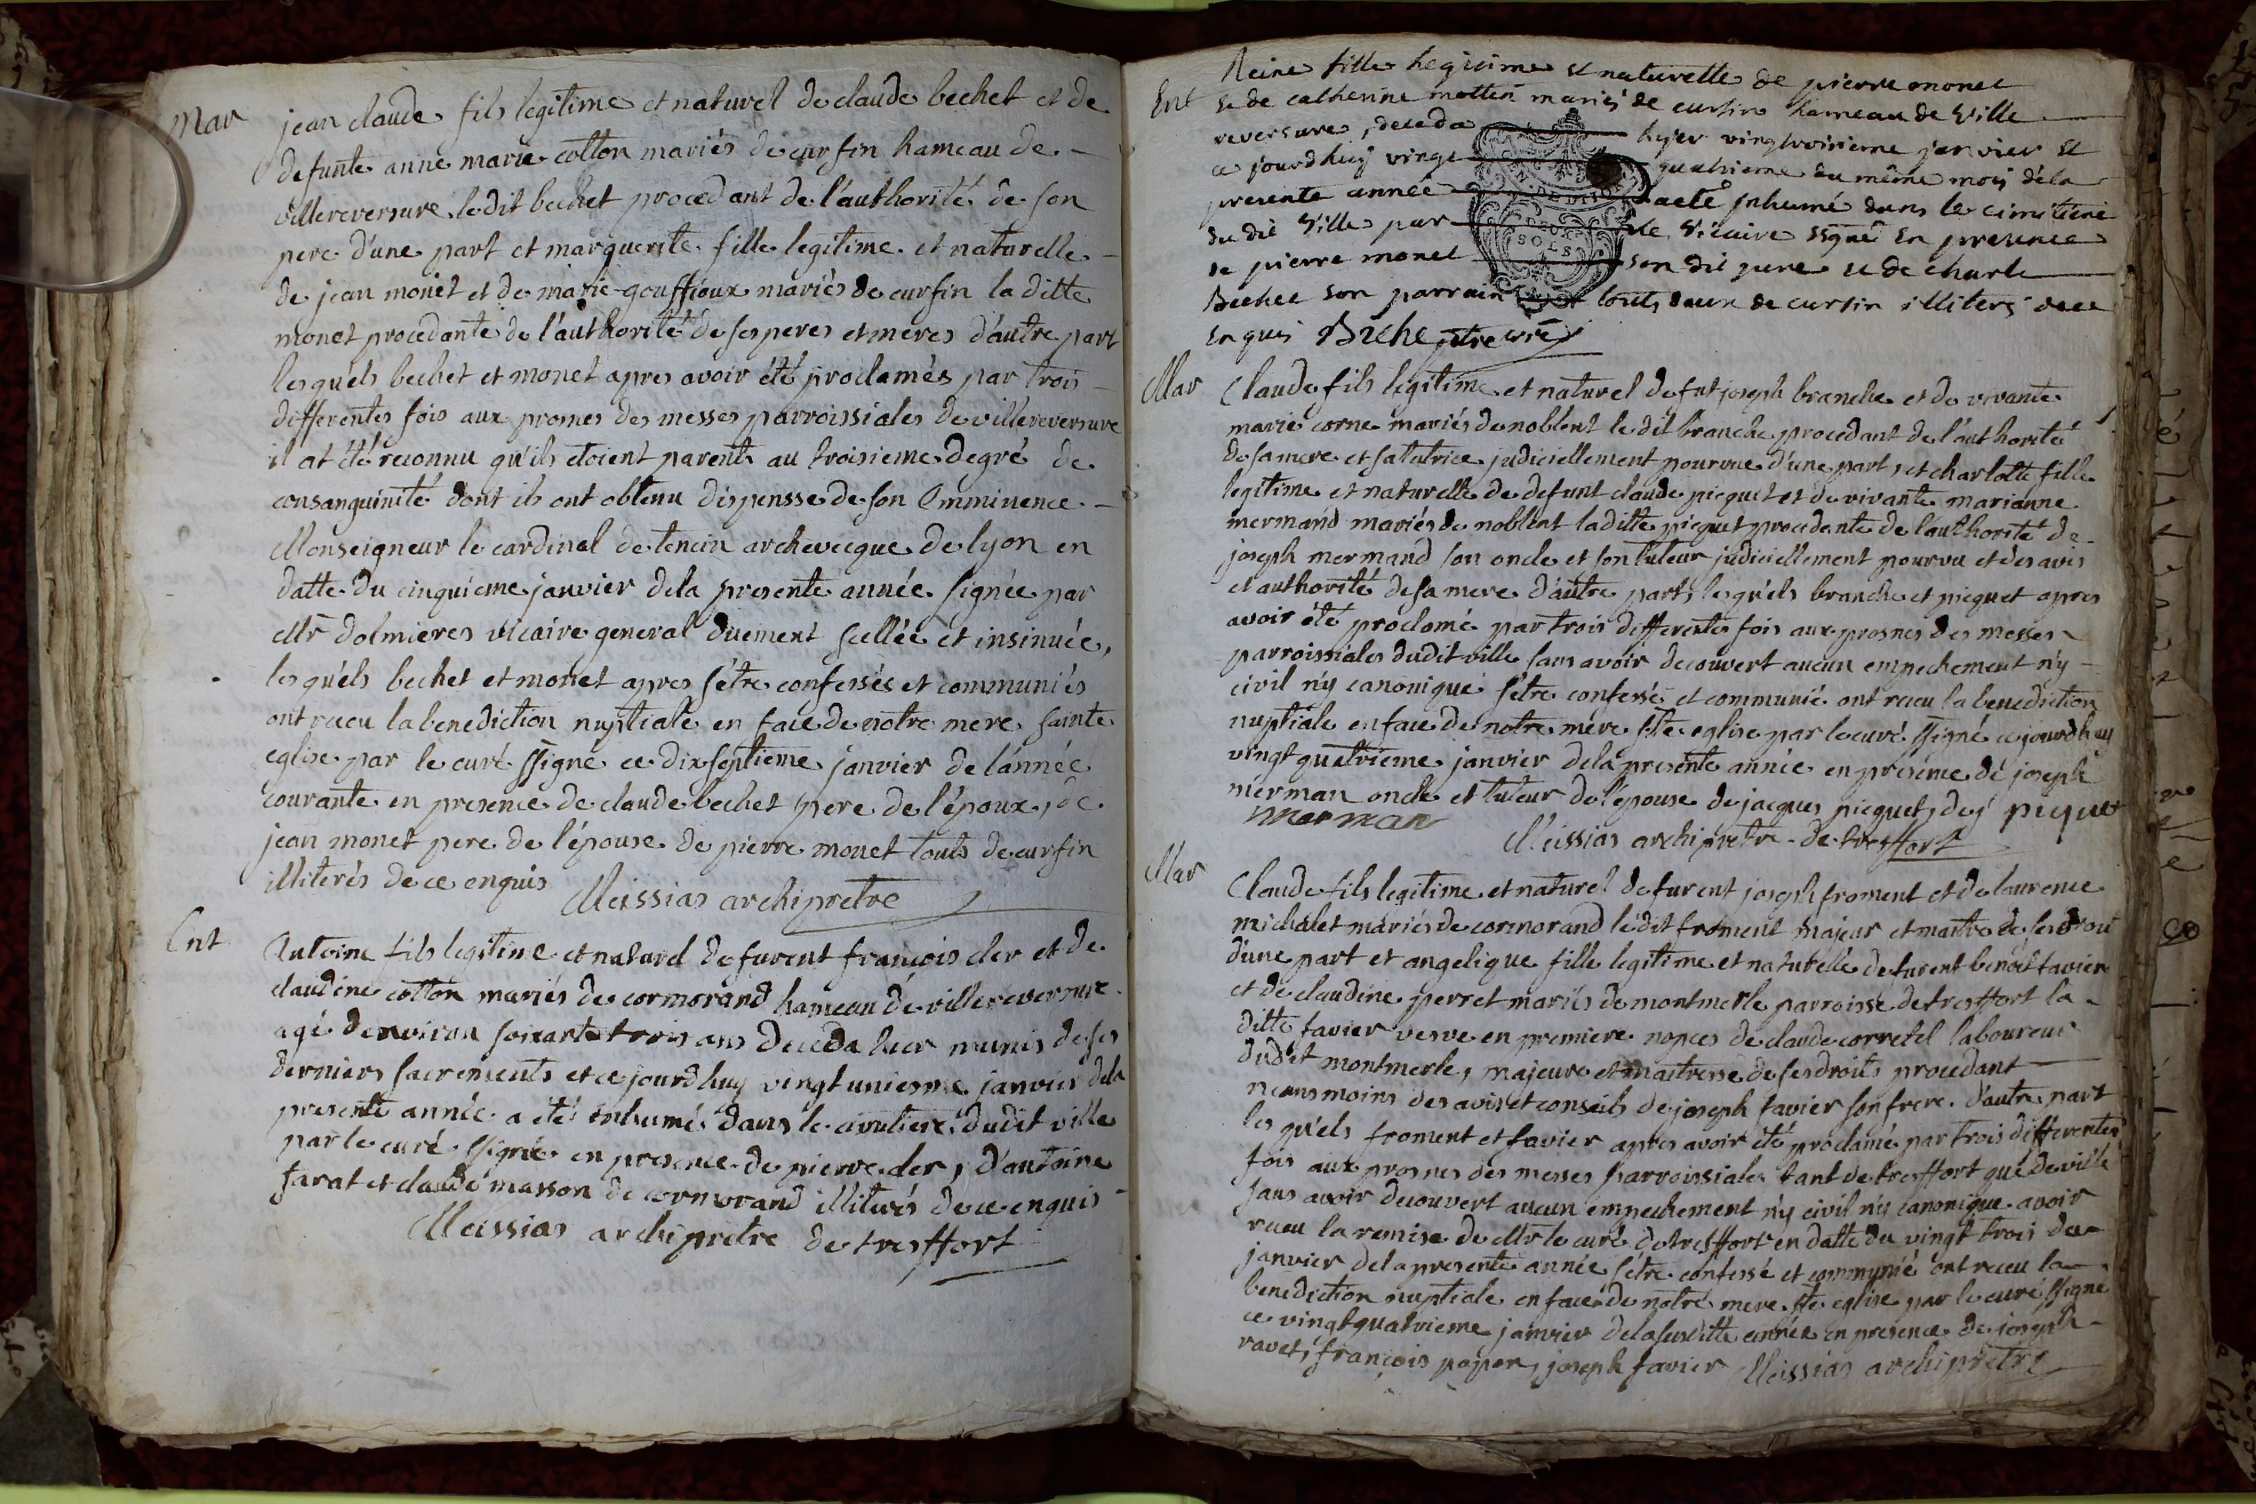 Mar
jean claude fils legitime et naturel de claude bechet et de
defunte anne marie cotton mariés de curfin hameau de
villereversure ledit bechet procedant de l'authorité de son
pere d'une part et marguerite fille legitime et naturelle
de jean monet et de marie gouffioux mariés de curfin la ditte
monet procedante de l'authorité de ses peres et meres d'autre part
lesquels bechet et monet apres avoir été proclamés par trois
differentes fois aux prosnes des messes parroissiales de villereversure
il at été reconnu qu'ils etoient parents au troisieme degré de
consanguinité dont ils ont obtenu dispensse de son Emminence
Monseigneur le cardinal de tencin archevecque de lyon en
datte du cinquieme janvier dela presente année signée par
Mr dolmieres vicaire general duement scellée et insinuée,
lesquels bechet et monet apres s'étre confessés et communiés
ont receu la benediction nuptiale en face de notre mere sainte
eglise par le curé ssigné ce dixseptieme janvier de l'année
courante en presence de claude bechet pere de l'époux, de
jean monet pere de l'épouse de pierre monet touts de curfin
illiterés de ce enquis Meissias archipretre
Ent
Antoine fils legitime et naturel de furent françois cler et de
claudine cotton mariés de cormorand hameau de villereversure
agé denviron soixante trois ans deceda hier munis de ses
derniers sacrements et ce jourdhuy vingt uniesme janvier dela
presente année a été inhumé dans le cimitiere dudit ville
par le curé ssigné en presence de pierre cler, d'antoine
farat et claude masson de cormorand illiterés de ce enquis
Meissias archipretre de tresffort
Ent
Reine fille legitime et naturelle de pierre monet
et de catherine mottin mariés de curfin hameau de Ville
reversure, deceda hyer vingtroisieme janvier et
ce jourdhuy vingt quatrieme du même mois dela
presente année a eté inhumé dans le cimitiere
du dit Ville par le Vicaire ssigné En presence
de pierre monet son dit pere et de charle
Bechet son parrain touts deux de curfin illiterés de ce
Enquis
SOLS
Mar
Claude fils legitime et naturel de fut joseph branche et de vivante
marie corne mariés de noblent le dit branche procedant de l'authorité
de sa mere et sa tutrice judiciellement pourvue d'une part, et charlotte fille
legitime et naturelle de defunt claude picquet et de vivante marianne
mermand mariés de noblent laditte picquet procedante de l'authorité de
joseph mermand son oncle et son tuteur judiciellement pourvu et des avis
et authorité de sa mere d'autre part, lesquels branche et picquet apres
avoir été proclamé par trois differentes fois aux prosnes des messes
parroissiales dudit ville sans avoir decouvert aucun empechement n'y
civil n'y canonique s'étre confessé et communié ont receu la benediction
nuptiale en face de notre mere ste eglise par le curé ssigné ce jourdhuy
vingt quatrieme janvier dela presente année en presence de joseph
merman oncle et tuteur de l'épouse de jacques picquet, de j piquet
merman
Meissias archipretre de tresffort
Mar
Claude fils legitime et naturel de furent joseph froment et de laurence
michalet mariés de cormorand ledit froment majeur et maitre de ses droits
d'une part et angelique fille legitime et naturelle de furent benoit favier
et de claudine perret mariés de montmerle parroisse de tresffort la
ditte favier vesve en premiere nopces de claude corretel laboureur
dudit montmerle, majeure et maitresse de ses droits procedant
neansmoins des avis et conseils de joseph favier son frere d'autre part
les quels froment et favier apres avoir été proclamé par trois differentes
fois aux prosnes des messes parroissiales tant de tresffort que de ville
sans avoir decouvert aucun empechement n'y civil n'y canonique avoir
receu la remise de Mr le curé de tresffort en datte du vingt trois de
janvier dela presente année s'étre confessé et communié ont receu la
benediction nuptiale en face de notre mere ste eglise par le curé ssigné
ce vingtquatrieme janvier dela susditte année en presence de joseph
ravet, françois papon, joseph favier Meissias archipretre